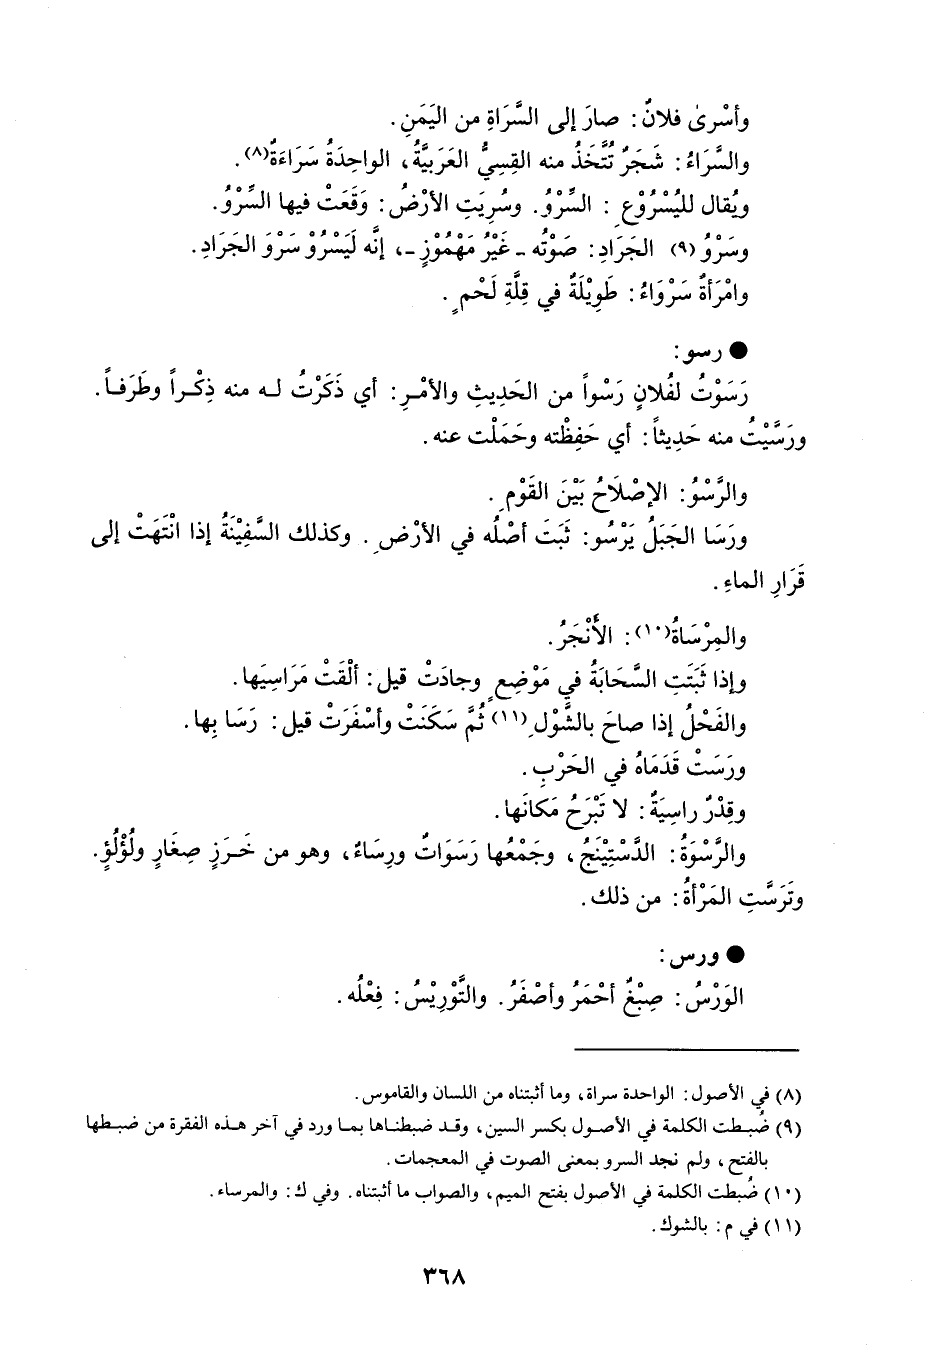 وأسْرىٰ فلانٌ: صارَ إلى السَّرَاةِ من اليَمَنِ.
والسَّرَاءُ: شَجَرٌ تُتَّخَذُ منه القِسِيُّ العَرَبيَّةُ، الواحِدَةُ سَرَاءَةٌ(٨).
ويُقال لليُسْرُوْعِ: السِّرْوُ. وسُرِيَتِ الأرْضُ: وَقَعَتْ فيها السِّرْوُ.
وسَرْوُ(٩) الجَرَادِ: صَوْتُه ـ غَيْرُ مَهْمُوْزٍ ـ، إنَّه لَيَسْرُوْ سَرْوَ الجَرَادِ.
وامْرَأةٌ سَرْوَاءُ: طَوِيْلَةٌ في قِلَّةِ لَحْمٍ.
● رسو:
رَسَوْتُ لفُلانٍ رَسْواً من الحَدِيثِ والأمْرِ: أي ذَكَرْتُ له منه ذِكْراً وطَرَفاً.
ورَسَّيْتُ منه حَدِيثاً: أي حَفِظْته وحَمَلْت عنه.
والرَّسْوُ: الإصْلَاحُ بَيْنَ القَوْمِ.
ورَسَا الجَبَلُ يَرْسُو: ثَبَتَ أصْلُه في الأرْضِ. وكذلك السَّفِيْنَةُ إذا انْتَهَتْ إلى
قَرَارِ الماءِ.
والمِرْسَاةُ(١٠): الأَنْجَرُ.
وإذا ثَبَتَتِ السَّحَابَةُ في مَوْضِعٍ وجادَتْ قيل: ألْقَتْ مَرَاسِيَها.
والفَحْلُ إذا صاحَ بالشَّوْلِ(١١) ثُمَّ سَكَنَتْ وأسْفَرَتْ قيل: رَسَا بِها.
ورَسَتْ قَدَمَاهُ في الحَرْبِ.
وقِدْرٌ راسِيَةٌ: لا تَبْرَحُ مَكانَها.
والرَّسْوَةُ: الدَّسْتِيْنَجُ، وجَمْعُها رَسَوَاتٌ ورِسَاءٌ، وهو من خَرَزٍ صِغَارٍ ولُؤْلُؤٍ.
وتَرَسَّتِ المَرْأةُ: من ذلك.
● ورس:
الوَرْسُ: صِبْغٌ أحْمَرُ وأصْفَرُ. والتَّوْرِيْسُ: فِعْلُه.
(٨) في الأصول: الواحدة سراة، وما أثبتناه من اللسان والقاموس.
(٩) ضُبطت الكلمة في الأصول بكسر السين، وقد ضبطناها بما ورد في آخر هذه الفقرة من ضبطها
بالفتح، ولم نجد السرو بمعنى الصوت في المعجمات.
(١٠) ضُبطت الكلمة في الأصول بفتح الميم، والصواب ما أثبتناه. وفي ك: والمرساء.
(١١) في م: بالشوك.
٣٦٨